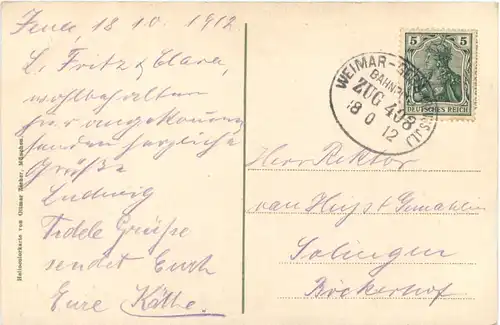 Jena, 18 10. 1912.
L. Fritz & Clara,
wohlbehalten
hier angekommen
senden herzliche
Grüße
Ludwig
Fidele Grüße
sendet Euch
Eure Käthe.
Heliocolorkarte von Ottmar Zieher, München.
5 5
DEUTSCHES REICH
WEIMAR-
BAHNPOST
ZUG 408
18 0 12
Herrn Rektor
van Huyst Gemahlin
Solingen
Böckerhof